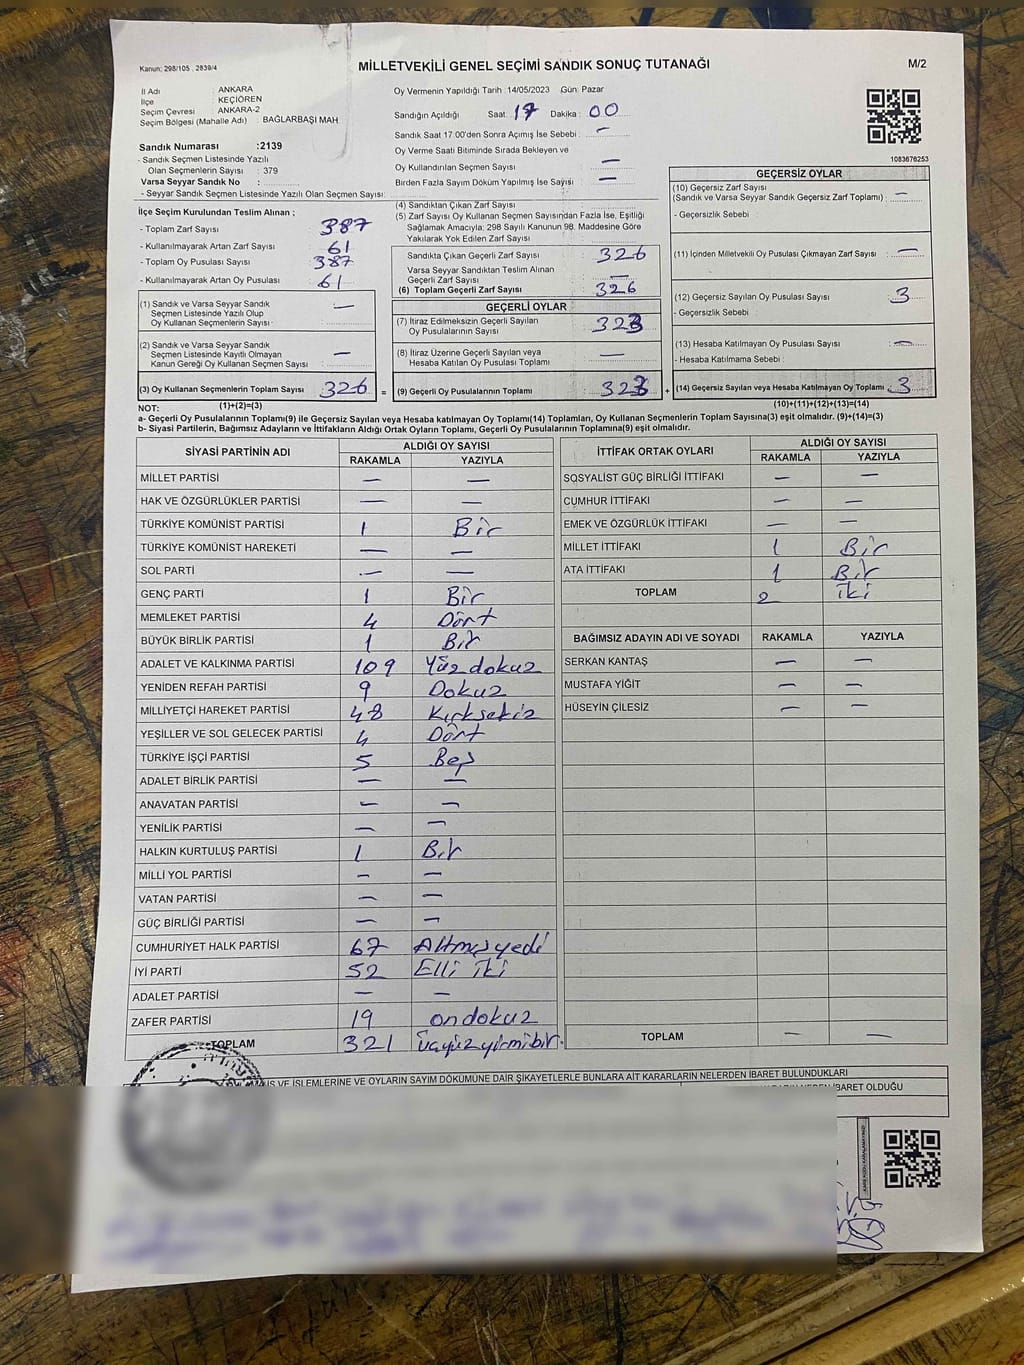 Kanun: 298/105 , 2839/4
MİLLETVEKİLİ GENEL SEÇİMİ SANDIK SONUÇ TUTANAĞI
M/2
İl Adı : ANKARA
İlçe : KEÇİÖREN
Seçim Çevresi : ANKARA-2
Seçim Bölgesi (Mahalle Adı) : BAĞLARBAŞI MAH
Sandık Numarası :2139
- Sandık Seçmen Listesinde Yazılı
Olan Seçmenlerin Sayısı : 379
Varsa Seyyar Sandık No :
- Seyyar Sandık Seçmen Listesinde Yazılı Olan Seçmen Sayısı:
Oy Vermenin Yapıldığı Tarih : 14/05/2023 Gün: Pazar
Sandığın Açıldığı Saat: 17 Dakika: 00
Sandık Saat 17:00'den Sonra Açımış İse Sebebi : —
Oy Verme Saati Bitiminde Sırada Bekleyen ve
Oy Kullandırılan Seçmen Sayısı —
Birden Fazla Sayım Döküm Yapılmış İse Sayısı —
1083676253
İlçe Seçim Kurulundan Teslim Alınan ;
- Toplam Zarf Sayısı : 387
- Kullanılmayarak Artan Zarf Sayısı : 61
- Toplam Oy Pusulası Sayısı : 387
- Kullanılmayarak Artan Oy Pusulası : 61
(1) Sandık ve Varsa Seyyar Sandık
Seçmen Listesinde Yazılı Olup
Oy Kullanan Seçmenlerin Sayısı : —
(2) Sandık ve Varsa Seyyar Sandık
Seçmen Listesinde Kayıtlı Olmayan
Kanun Gereği Oy Kullanan Seçmen Sayısı : —
(3) Oy Kullanan Seçmenlerin Toplam Sayısı 326 =
(1)+(2)=(3)
(4) Sandıktan Çıkan Zarf Sayısı :
(5) Zarf Sayısı Oy Kullanan Seçmen Sayısından Fazla İse, Eşitliği
Sağlamak Amacıyla; 298 Sayılı Kanunun 98. Maddesine Göre
Yakılarak Yok Edilen Zarf Sayısı :
Sandıkta Çıkan Geçerli Zarf Sayısı : 326
Varsa Seyyar Sandıktan Teslim Alınan
Geçerli Zarf Sayısı : —
(6) Toplam Geçerli Zarf Sayısı : 326
GEÇERLİ OYLAR
(7) İtiraz Edilmeksizin Geçerli Sayılan
Oy Pusulalarının Sayısı : 323
(8) İtiraz Üzerine Geçerli Sayılan veya
Hesaba Katılan Oy Pusulası Toplamı : —
(9) Geçerli Oy Pusulalarının Toplamı : 323 +
GEÇERSİZ OYLAR
(10) Geçersiz Zarf Sayısı
(Sandık ve Varsa Seyyar Sandık Geçersiz Zarf Toplamı) : —
- Geçersizlik Sebebi :
(11) İçinden Milletvekili Oy Pusulası Çıkmayan Zarf Sayısı : —
(12) Geçersiz Sayılan Oy Pusulası Sayısı : 3
- Geçersizlik Sebebi :
(13) Hesaba Katılmayan Oy Pusulası Sayısı : —
- Hesaba Katılmama Sebebi :
(14) Geçersiz Sayılan veya Hesaba Katılmayan Oy Toplamı : 3
(10)+(11)+(12)+(13)=(14)
NOT:
a- Geçerli Oy Pusulalarının Toplamı(9) ile Geçersiz Sayılan veya Hesaba katılmayan Oy Toplam(14) Toplamları, Oy Kullanan Seçmenlerin Toplam Sayısına(3) eşit olmalıdır. (9)+(14)=(3)
b- Siyasi Partilerin, Bağımsız Adayların ve İttifakların Aldığı Ortak Oyların Toplamı, Geçerli Oy Pusulalarının Toplamına(9) eşit olmalıdır.
SİYASİ PARTİNİN ADI ALDIĞI OY SAYISI
RAKAMLA YAZIYLA
MİLLET PARTİSİ — —
HAK VE ÖZGÜRLÜKLER PARTİSİ — —
TÜRKİYE KOMÜNİST PARTİSİ 1 Bir
TÜRKİYE KOMÜNİST HAREKETİ — —
SOL PARTİ — —
GENÇ PARTİ 1 Bir
MEMLEKET PARTİSİ 4 Dört
BÜYÜK BİRLİK PARTİSİ 1 Bir
ADALET VE KALKINMA PARTİSİ 109 Yüz dokuz
YENİDEN REFAH PARTİSİ 9 Dokuz
MİLLİYETÇİ HAREKET PARTİSİ 48 Kırksekiz
YEŞİLLER VE SOL GELECEK PARTİSİ 4 Dört
TÜRKİYE İŞÇİ PARTİSİ 5 Beş
ADALET BİRLİK PARTİSİ — —
ANAVATAN PARTİSİ — —
YENİLİK PARTİSİ — —
HALKIN KURTULUŞ PARTİSİ 1 Bir
MİLLİ YOL PARTİSİ — —
VATAN PARTİSİ — —
GÜÇ BİRLİĞİ PARTİSİ — —
CUMHURİYET HALK PARTİSİ 67 Altmışyedi
İYİ PARTİ 52 Elli iki
ADALET PARTİSİ — —
ZAFER PARTİSİ 19 ondokuz
TOPLAM 321 üçyüzyirmibir.
İTTİFAK ORTAK OYLARI ALDIĞI OY SAYISI
RAKAMLA YAZIYLA
SOSYALİST GÜÇ BİRLİĞİ İTTİFAKI — —
CUMHUR İTTİFAKI — —
EMEK VE ÖZGÜRLÜK İTTİFAKI — —
MİLLET İTTİFAKI 1 Bir
ATA İTTİFAKI 1 Bir
TOPLAM 2 iki
BAĞIMSIZ ADAYIN ADI VE SOYADI RAKAMLA YAZIYLA
SERKAN KANTAŞ — —
MUSTAFA YİĞİT — —
HÜSEYİN ÇİLESİZ — —
TOPLAM — —
İŞ VE İŞLEMLERİNE VE OYLARIN SAYIM DÖKÜMÜNE DAİR ŞİKAYETLERLE BUNLARA AİT KARARLARIN NELERDEN İBARET BULUNDUKLARI
NEDEN İBARET OLDUĞU